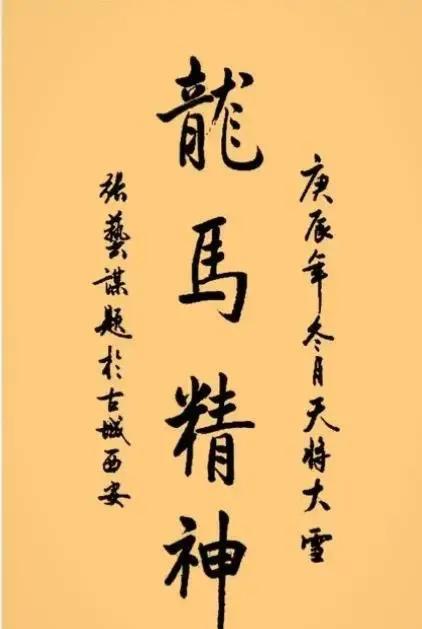 庚辰年冬月天将大雪
龍馬精神
張藝謀題於古城西安